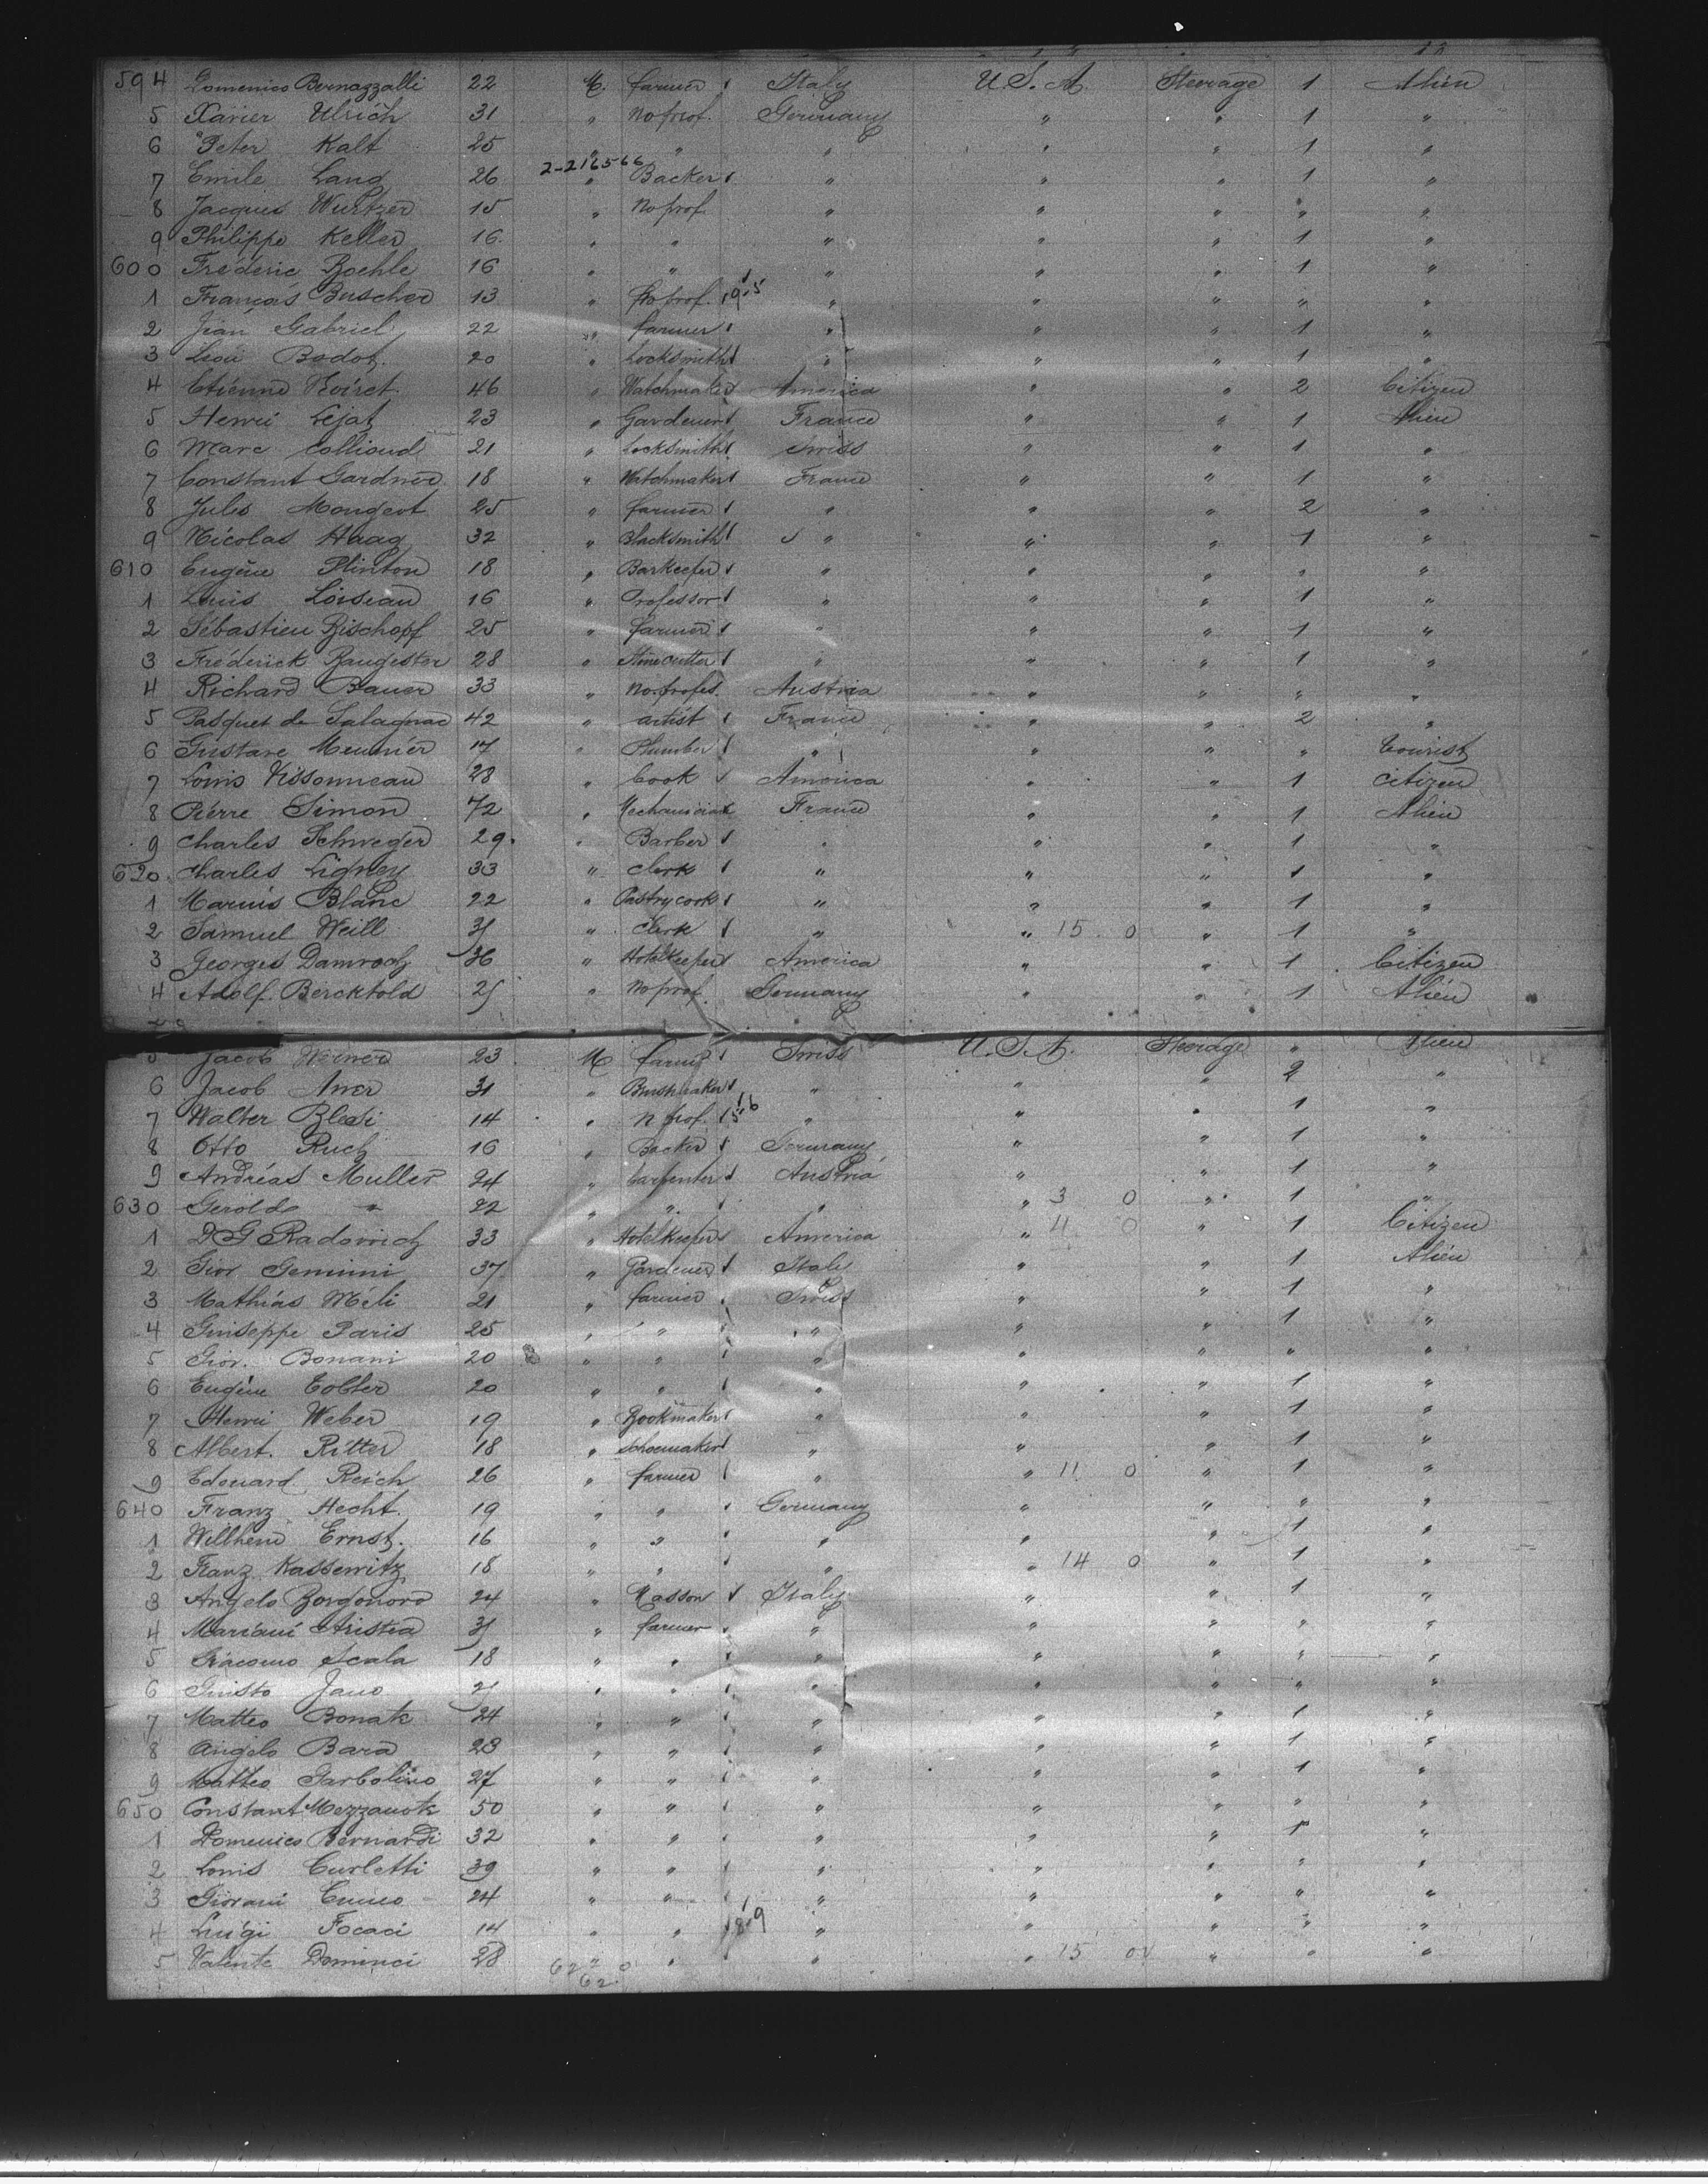 594 Domenico Bernazzalli 22 M. farmer Italy U.S.A. Steerage 1 Alien
5 Xavier Ulrich 31 " No prof. Germany " " 1 "
6 Peter Kalt 25 " " " " " 1 "
2-216566
7 Emile Lang 26 " Backer " " " 1 "
8 Jacques Wurtzer 15 " No prof " " " " "
9 Philippe Keller 16 " " " " " 1 "
600 Fréderic Boehle 16 " " " " " 1 "
1 François Buscher 13 " No prof. " " " " "
2 Jean Gabriel 22 " farmer " " " 1 "
3 Léon Bodot 20 " Locksmith " " " 1 "
4 Etienne Poiret 46 " Watchmaker America " " 2 Citizen
5 Henri Léjat 23 " Gardener France " " 1 Alien
6 Marc Collioud 21 " Locksmith Swiss " " 1 "
7 Constant Gardner 18 " Watchmaker France " " 1 "
8 Jules Mongeot 25 " farmer " " " 2 "
9 Nicolas Haag 32 " Blacksmith " " " 1 "
610 Eugène Plinton 18 " Barkeeper " " " " "
1 Louis Loiseau 16 " Professor " " " 1 "
2 Sébastien Bischopf 25 " farmer " " " 1 "
3 Fréderick Raugister 28 " Stinecutter " " " 1 "
4 Richard Bauer 33 " No profes. Austria " " " "
5 Pasquet de Salagnac 42 " artist France " " 2 "
6 Gustave Meunier 17 " Plumber " " " " Tourist
7 Louis Vissonneau 28 " Cook America " " 1 Citizen
8 Pierre Simon 72 " Mechanician France " " 1 Alien
9 Charles Schweger 29 " Barber " " " 1 "
620 Charles Ligney 33 " Clerk " " " 1 "
1 Marius Blanc 22 " Pastrycook " " " 1 "
2 Samuel Weill 31 " Clerk " " 15 0 " 1 "
3 Georges Damrosch 36 " Hotelkeeper America " " 1 Citizen
4 Adolf. Bercktold 21 " No prof. Germany " " 1 Alien
5 Jacob Werner 23 M farmer Swiss U.S.A. Steerage " Alien
6 Jacob Amer 31 " Brushmaker " " " 2 "
7 Walter Blesi 14 " N prof. " " " 1 "
8 Otto Ruch 16 " Backer Germany " " 1 "
9 Andréas Muller 24 " Carpenter Austria " " 1 "
630 Gerold " 22 " " " " 3 0 " 1 "
1 D G Radovich 33 " Hotelkeeper America " 4 0 " 1 Citizen
2 Giov. Gemini 37 " Gardener Italy " " 1 Alien
3 Mathias Méli 21 " farmer Swiss " " 1 "
4 Giuseppe Paris 25 " " " " " 1 "
5 Giov. Bonani 20 " " " " " " "
6 Eugène Tobler 20 " " " " " 1 "
7 Henri Weber 19 " Bookmaker " " " 1 "
8 Albert. Ritter 18 " Schoemaker " " " 1 "
9 Edouard Reich 26 " farmer " " 11 0 " 1 "
640 Franz Hecht. 19 " " Germany " " " "
1 Wilhhem Ernst. 16 " " " " " 1 "
2 Franz Kassewitz 18 " " " " 14 0 " 1 "
3 Angelo Borgonovo 24 " Masson Italy " " 1 "
4 Mariani Aristea 31 " farmer " " " " "
5 Giacomo Scala 18 " " " " " " "
6 Giusto Jano 21 " " " " " " "
7 Matteo Bonak 24 " " " " " 1 "
8 Angelo Bara 23 " " " " " 1 "
9 Matteo Garbolino 27 " " " " " 1 "
650 Constant Mezzanotte 50 " " " " " " "
1 Domenico Bernardi 32 " " " " " 1 "
2 Louis Curletti 39 " " " " " " "
3 Giovani Cuneo 24 " " " " " " "
4 Luigi Focaci 14 " " " " " " "
5 Valente Dominici 28 " " " " 15 0 " " "